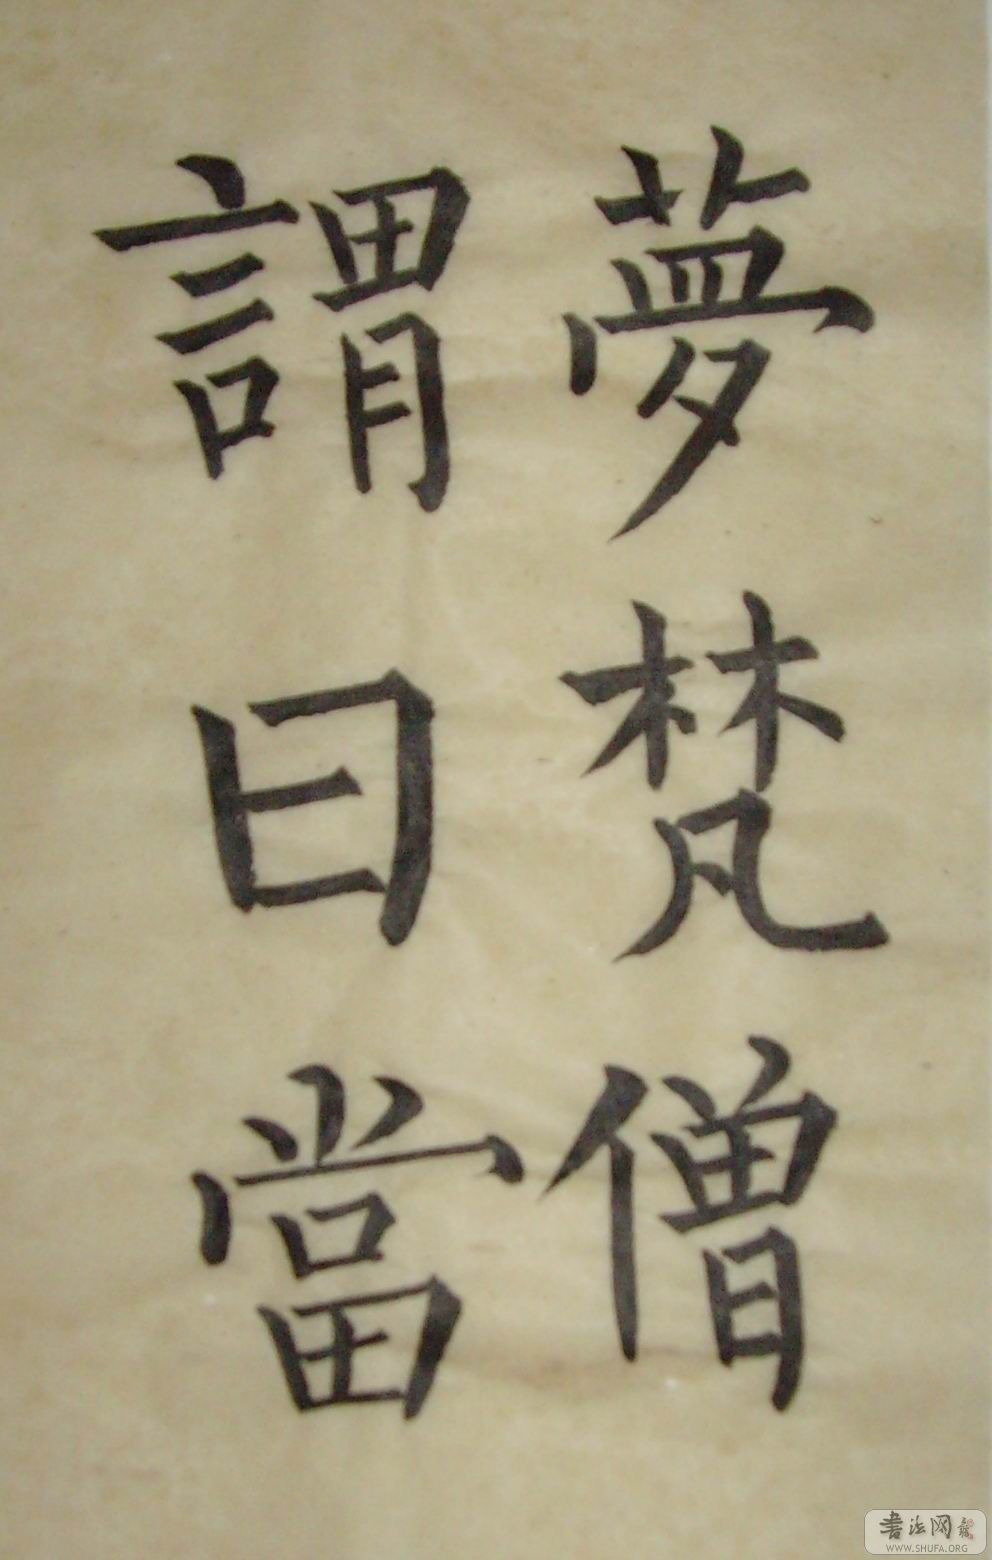 夢梵僧
謂曰當
書法网
WWW.SHUFA.ORG